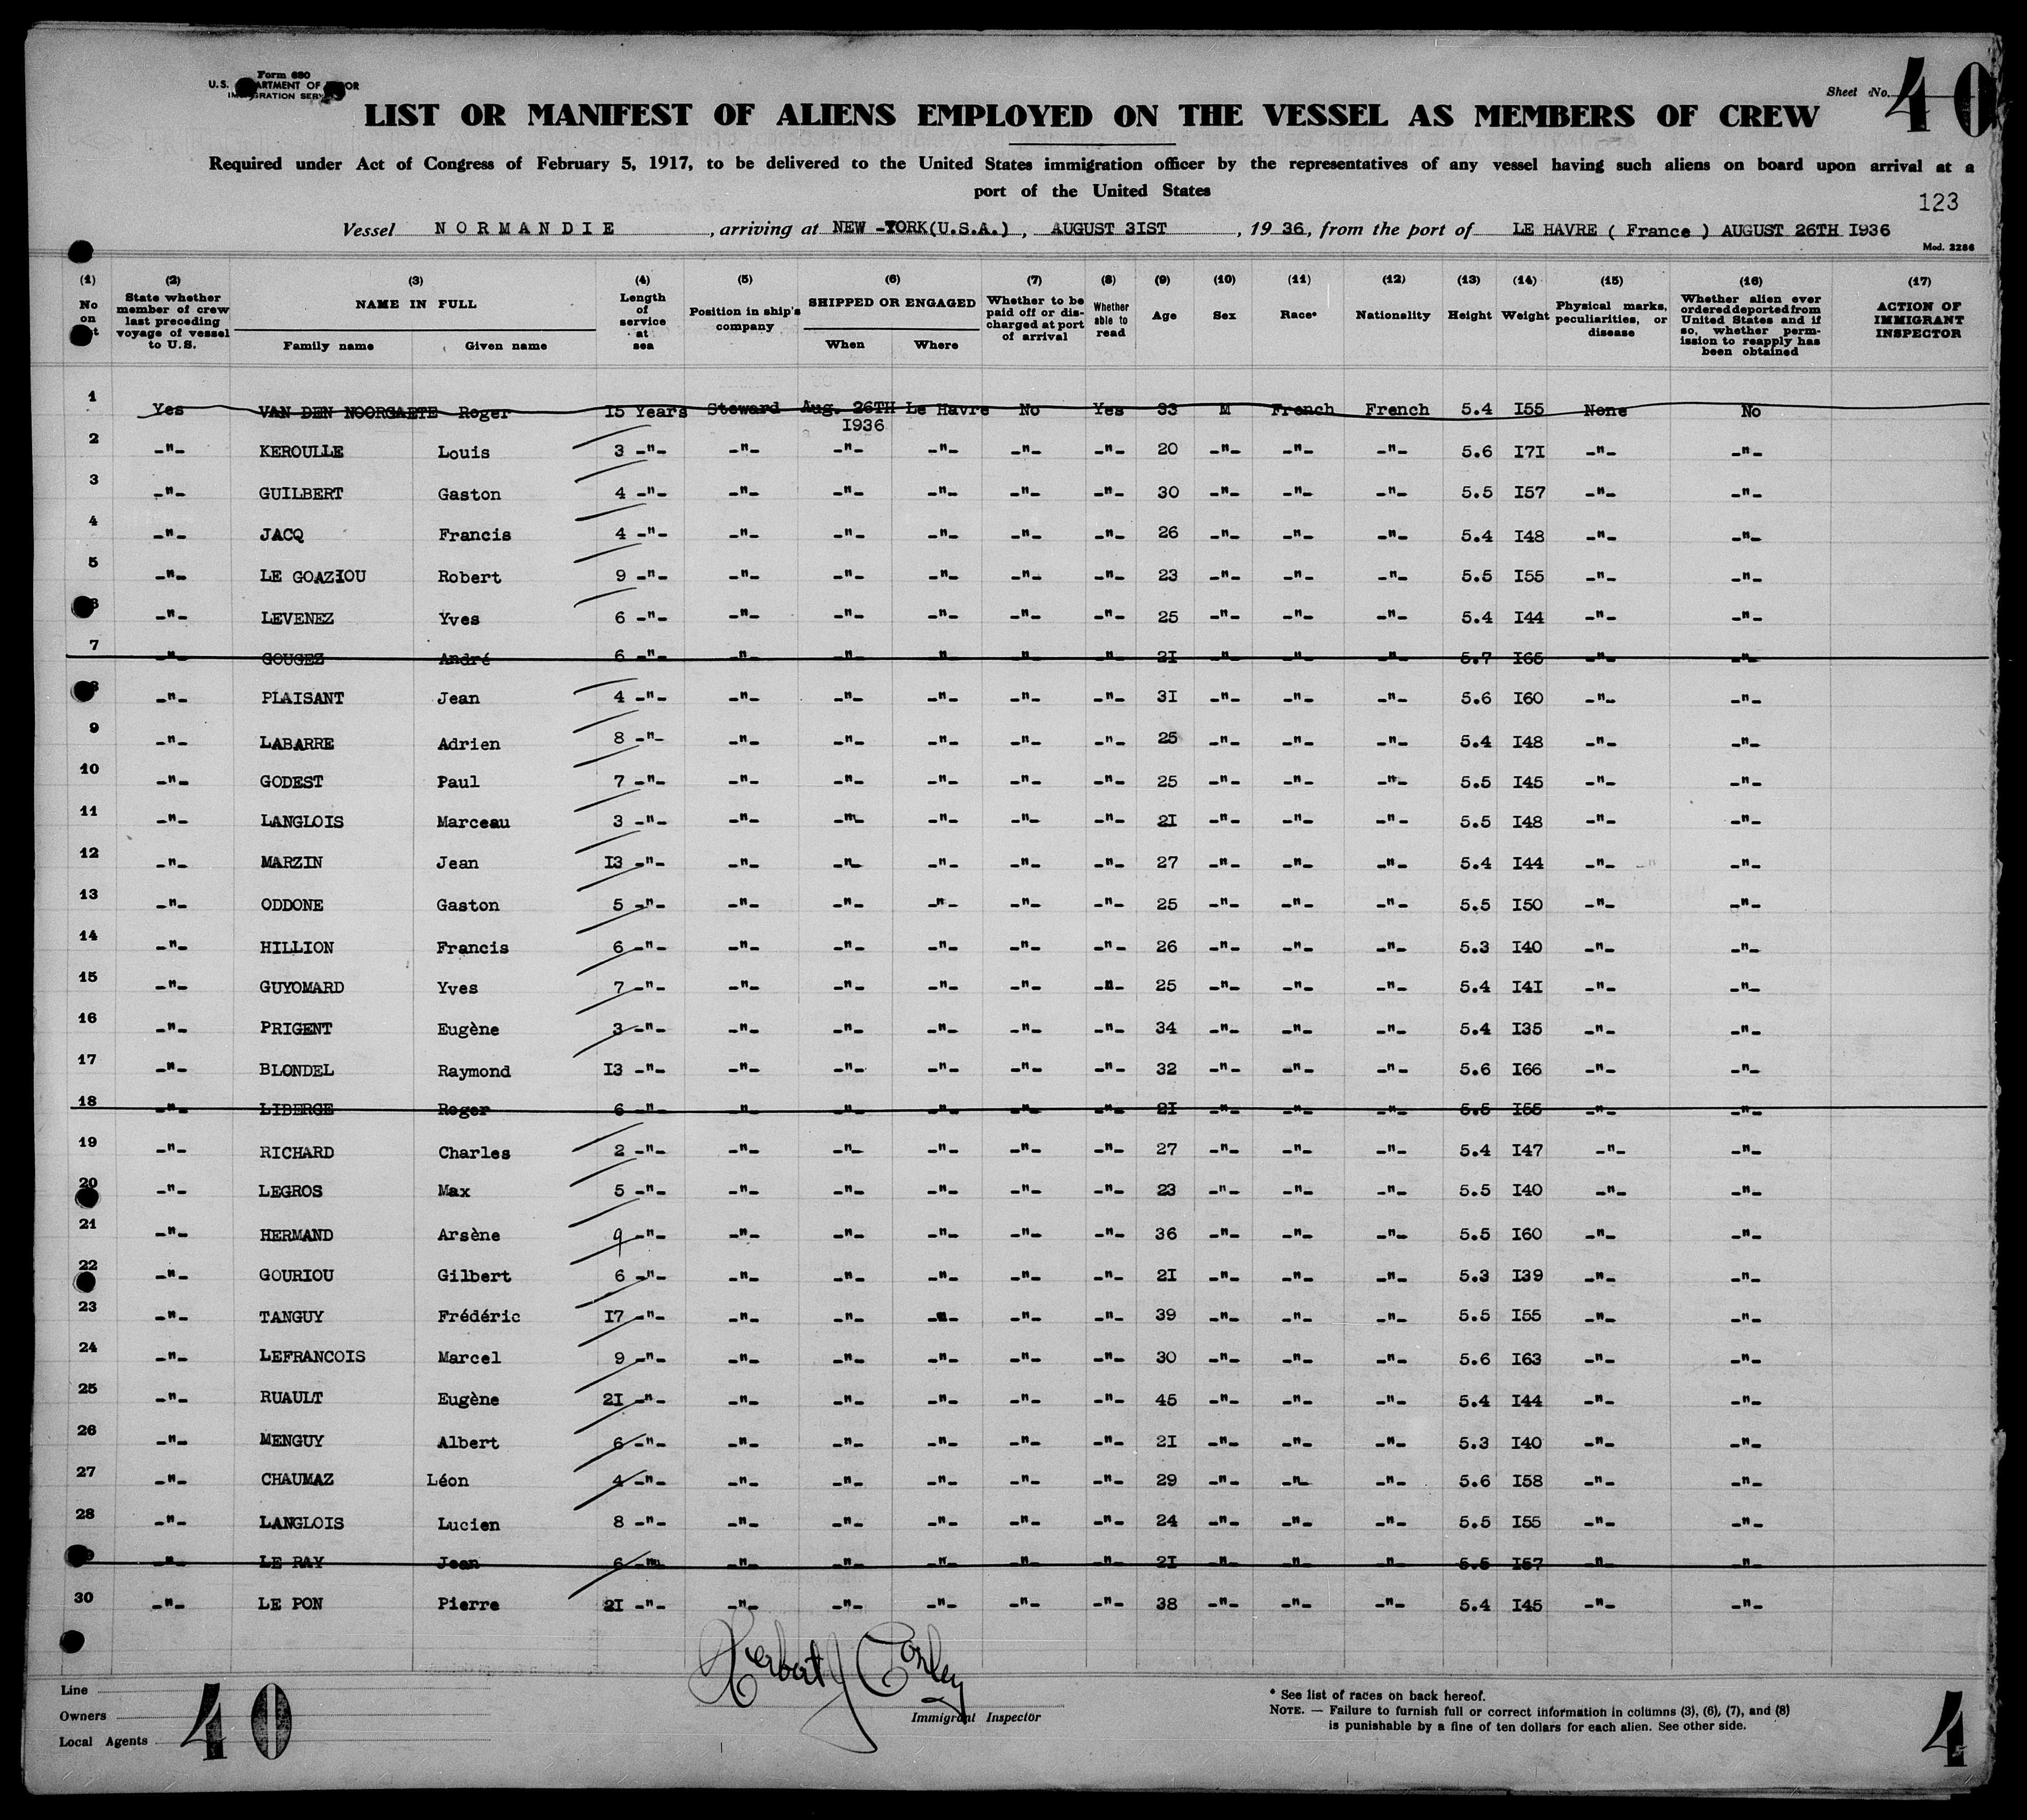 Form 680
U.S. DEPARTMENT OF LABOR
IMMIGRATION SERVICE
Sheet No. 40
LIST OR MANIFEST OF ALIENS EMPLOYED ON THE VESSEL AS MEMBERS OF CREW
Required under Act of Congress of February 5, 1917, to be delivered to the United States immigration officer by the representatives of any vessel having such aliens on board upon arrival at a
port of the United States
123
Vessel NORMANDIE, arriving at NEW-YORK(U.S.A.), AUGUST 3IST, 1936, from the port of LE HAVRE ( France ) AUGUST 26TH I936
Mod. 2286
(1) No on list (2) State whether member of crew last preceding voyage of vessel to U.S. (3) NAME IN FULL Family name Given name (4) Length of service at sea (5) Position in ship's company (6) SHIPPED OR ENGAGED When Where (7) Whether to be paid off or discharged at port of arrival (8) Whether able to read (9) Age (10) Sex (11) Race* (12) Nationality (13) Height (14) Weight (15) Physical marks, peculiarities, or disease (16) Whether alien ever ordered deported from United States and if so, whether permission to reapply has been obtained (17) ACTION OF IMMIGRANT INSPECTOR
1 Yes VAN DEN NOORGAETE Roger I5 Years Steward Aug. 26TH I936 Le Havre No Yes 33 M French French 5.4 I55 None No
2 -"- KEROULLE Louis 3 -"- -"- -"- -"- -"- -"- 20 -"- -"- -"- 5.6 I7I -"- -"-
3 -"- GUILBERT Gaston 4 -"- -"- -"- -"- -"- -"- 30 -"- -"- -"- 5.5 I57 -"- -"-
4 -"- JACQ Francis 4 -"- -"- -"- -"- -"- -"- 26 -"- -"- -"- 5.4 I48 -"- -"-
5 -"- LE GOAZIOU Robert 9 -"- -"- -"- -"- -"- -"- 23 -"- -"- -"- 5.5 I55 -"- -"-
6 -"- LEVENEZ Yves 6 -"- -"- -"- -"- -"- -"- 25 -"- -"- -"- 5.4 I44 -"- -"-
7 -"- GOUGEZ André 6 -"- -"- -"- -"- -"- -"- 2I -"- -"- -"- 5.7 I65 -"- -"-
8 -"- PLAISANT Jean 4 -"- -"- -"- -"- -"- -"- 3I -"- -"- -"- 5.6 I60 -"- -"-
9 -"- LABARRE Adrien 8 -"- -"- -"- -"- -"- -"- 25 -"- -"- -"- 5.4 I48 -"- -"-
10 -"- GODEST Paul 7 -"- -"- -"- -"- -"- -"- 25 -"- -"- -"- 5.5 I45 -"- -"-
11 -"- LANGLOIS Marceau 3 -"- -"- -"- -"- -"- -"- 2I -"- -"- -"- 5.5 I48 -"- -"-
12 -"- MARZIN Jean I3 -"- -"- -"- -"- -"- -"- 27 -"- -"- -"- 5.4 I44 -"- -"-
13 -"- ODDONE Gaston 5 -"- -"- -"- -"- -"- -"- 25 -"- -"- -"- 5.5 I50 -"- -"-
14 -"- HILLION Francis 6 -"- -"- -"- -"- -"- -"- 26 -"- -"- -"- 5.3 I40 -"- -"-
15 -"- GUYOMARD Yves 7 -"- -"- -"- -"- -"- -"- 25 -"- -"- -"- 5.4 I4I -"- -"-
16 -"- PRIGENT Eugène 3 -"- -"- -"- -"- -"- -"- 34 -"- -"- -"- 5.4 I35 -"- -"-
17 -"- BLONDEL Raymond I3 -"- -"- -"- -"- -"- -"- 32 -"- -"- -"- 5.6 I66 -"- -"-
18 -"- LIBERGE Roger 6 -"- -"- -"- -"- -"- -"- 2I -"- -"- -"- 5.5 I55 -"- -"-
19 -"- RICHARD Charles 2 -"- -"- -"- -"- -"- -"- 27 -"- -"- -"- 5.4 I47 -"- -"-
20 -"- LEGROS Max 5 -"- -"- -"- -"- -"- -"- 23 -"- -"- -"- 5.5 I40 -"- -"-
21 -"- HERMAND Arsène 9 -"- -"- -"- -"- -"- -"- 36 -"- -"- -"- 5.5 I60 -"- -"-
22 -"- GOURIOU Gilbert 6 -"- -"- -"- -"- -"- -"- 2I -"- -"- -"- 5.3 I39 -"- -"-
23 -"- TANGUY Frédéric I7 -"- -"- -"- -"- -"- -"- 39 -"- -"- -"- 5.5 I55 -"- -"-
24 -"- LEFRANCOIS Marcel 9 -"- -"- -"- -"- -"- -"- 30 -"- -"- -"- 5.6 I63 -"- -"-
25 -"- RUAULT Eugène 2I -"- -"- -"- -"- -"- -"- 45 -"- -"- -"- 5.4 I44 -"- -"-
26 -"- MENGUY Albert 6 -"- -"- -"- -"- -"- -"- 2I -"- -"- -"- 5.3 I40 -"- -"-
27 -"- CHAUMAZ Léon 4 -"- -"- -"- -"- -"- -"- 29 -"- -"- -"- 5.6 I58 -"- -"-
28 -"- LANGLOIS Lucien 8 -"- -"- -"- -"- -"- -"- 24 -"- -"- -"- 5.5 I55 -"- -"-
29 -"- LE RAY Jean 6 -"- -"- -"- -"- -"- -"- 2I -"- -"- -"- 5.5 I57 -"- -"-
30 -"- LE PON Pierre 2I -"- -"- -"- -"- -"- -"- 38 -"- -"- -"- 5.4 I45 -"- -"-
Herbert J Conley
Immigrant Inspector
Line
Owners
Local Agents
40
* See list of races on back hereof.
NOTE. — Failure to furnish full or correct information in columns (3), (6), (7), and (8)
is punishable by a fine of ten dollars for each alien. See other side.
4